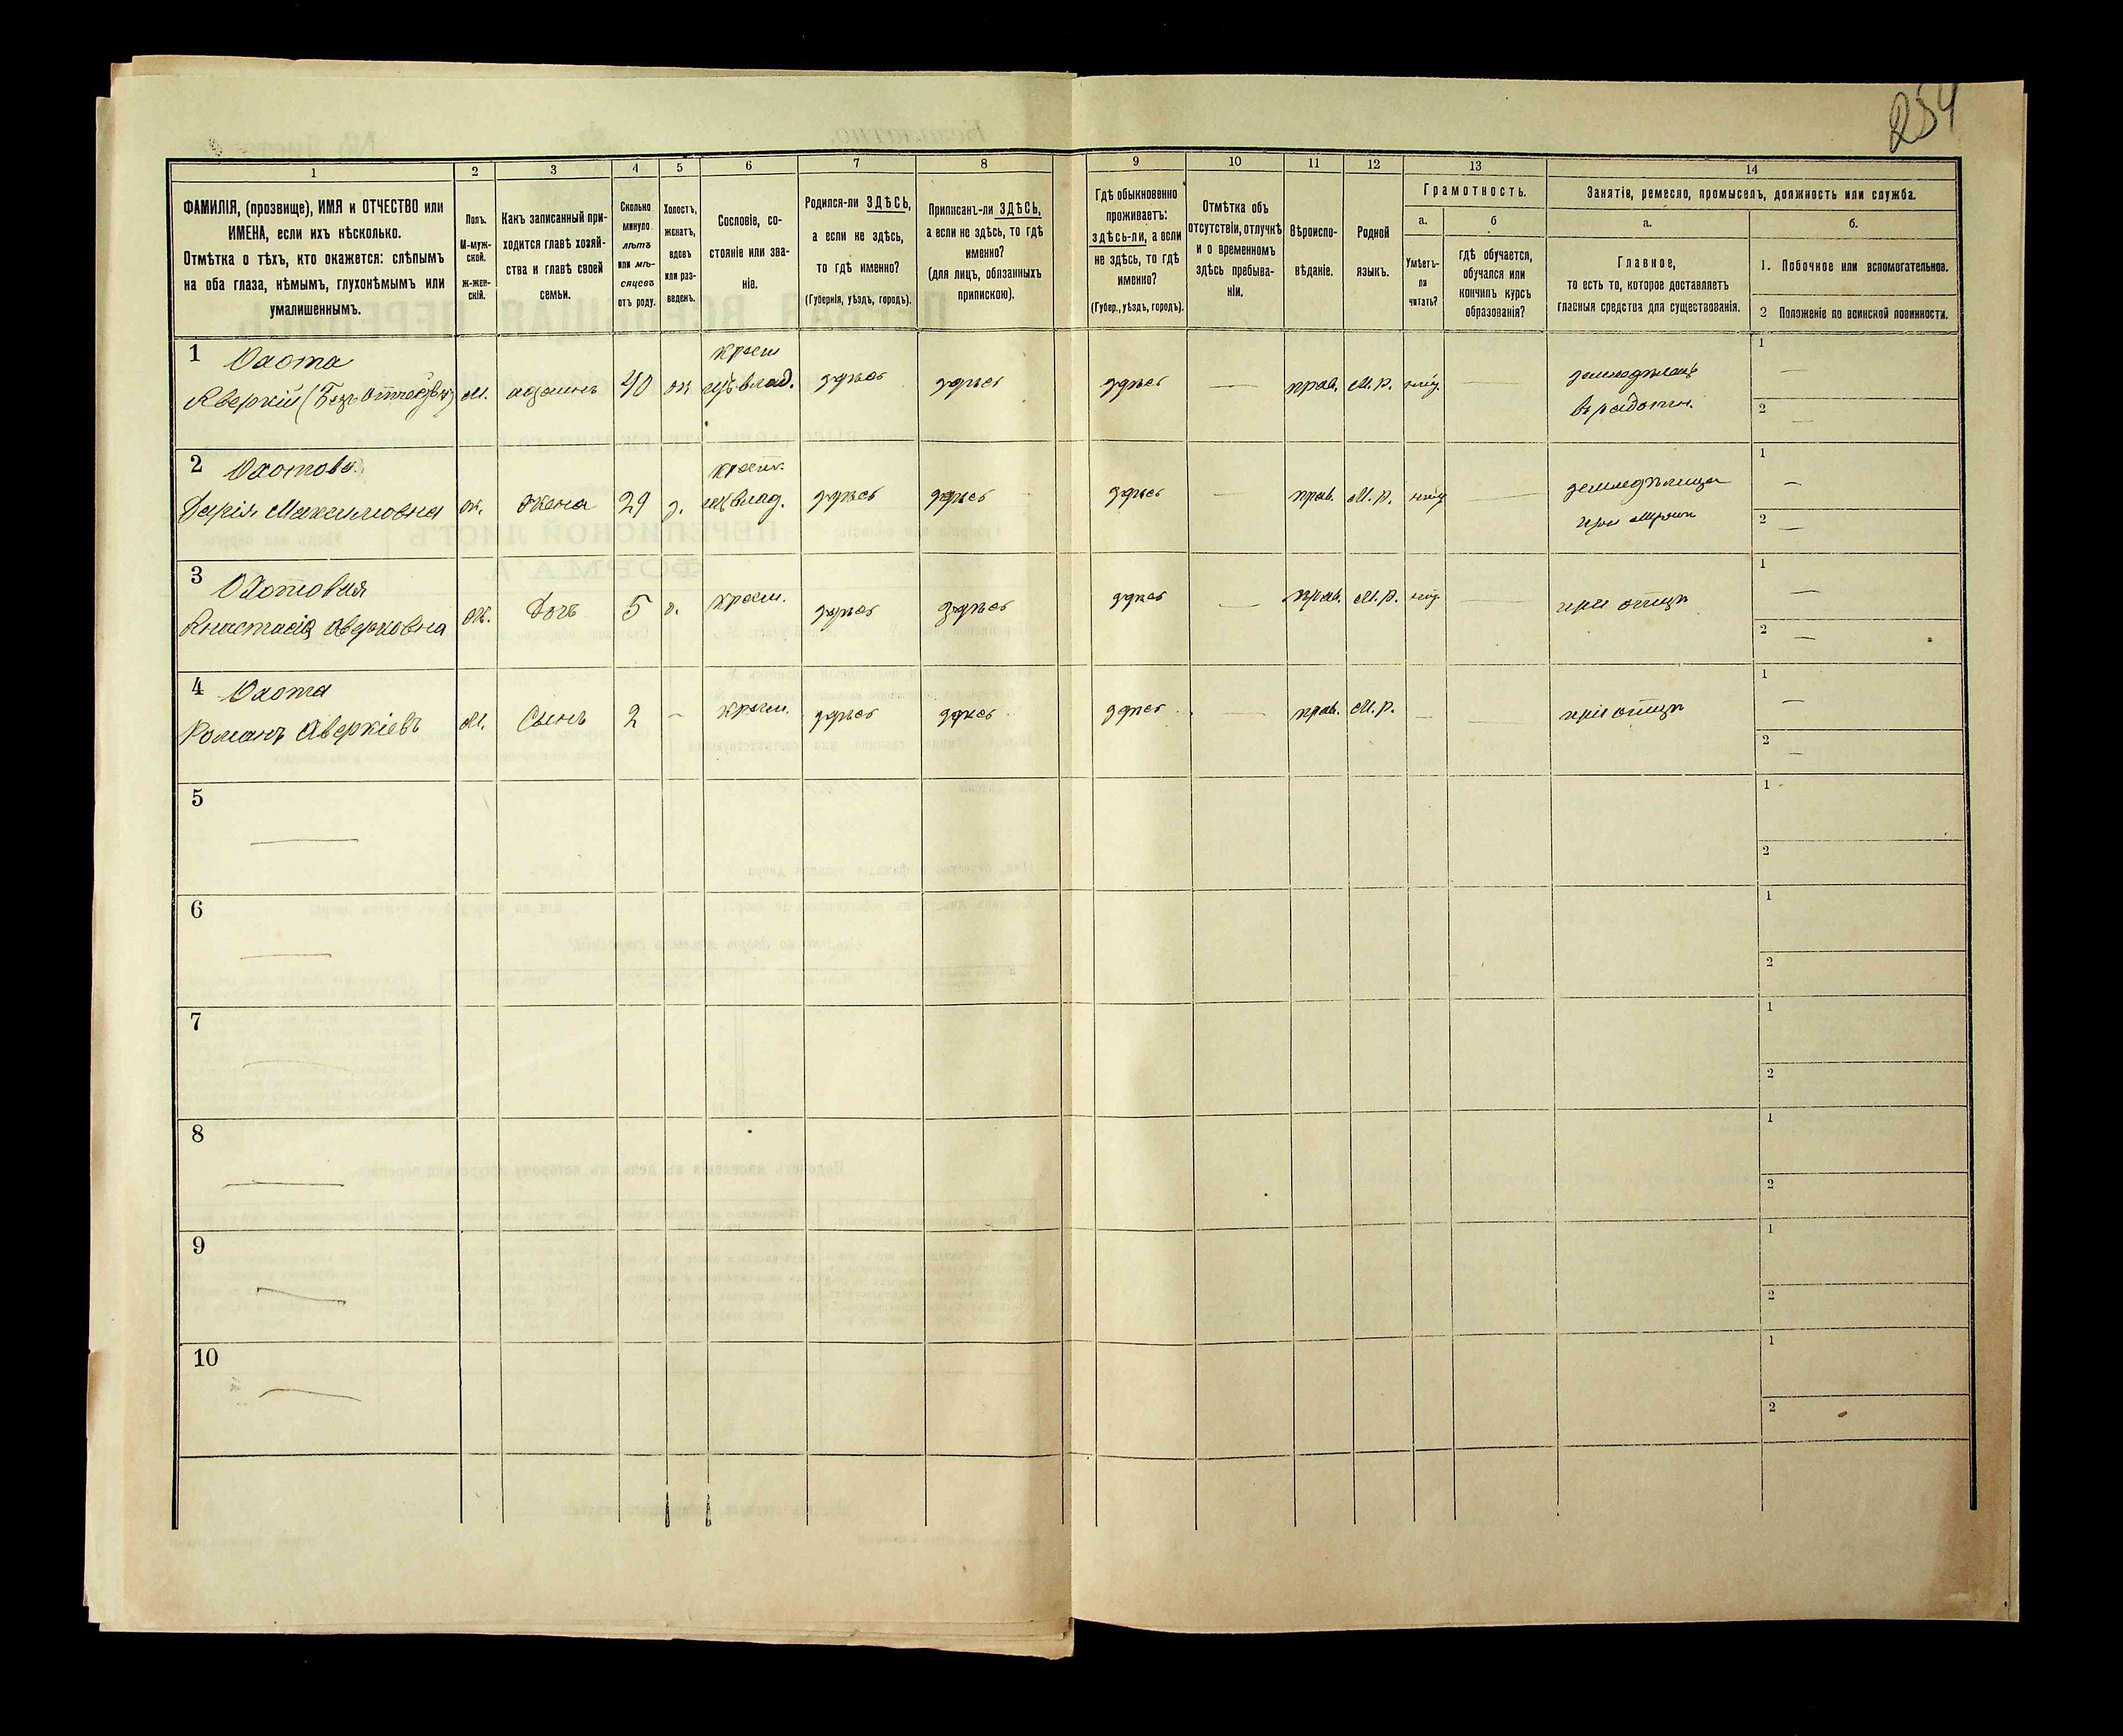 234
1
2
3
4
5
6
7
8
9
10
11
12
13
14
ФАМИЛІЯ, (прозвище), ИМЯ и ОТЧЕСТВО или
ИМЕНА, если ихъ нѣсколько.
Отмѣтка о тѣхъ, кто окажется: слѣпымъ
на оба глаза, нѣмымъ, глухонѣмымъ или
умалишеннымъ.
Полъ.
М-муж-
ской.
ж-жен-
скій.
Какъ записанный при-
ходится главѣ хозяй-
ства и главѣ своей
семьи.
Сколько
минуло
лѣтъ
или мѣ-
сяцевъ
отъ роду.
Холостъ,
женатъ,
вдовъ
или раз-
веденъ.
Сословіе, со-
стояніе или зва-
ніе.
Родился-ли ЗДѢСЬ,
а если не здѣсь,
то гдѣ именно?
(Губернія, уѣздъ, городъ).
Приписанъ-ли ЗДѢСЬ,
а если не здѣсь, то гдѣ
именно?
(для лицъ, обязанныхъ
припискою).
Гдѣ обыкновенно
проживаетъ:
здѣсь-ли, а если
не здѣсь, то гдѣ
именно?
(Губер., уѣздъ, городъ).
Отмѣтка объ
отсутствіи, отлучкѣ
и о временномъ
здѣсь пребыва-
ніи.
Вѣроиспо-
вѣданіе.
Родной
языкъ.
Грамотность.
а.
Умѣетъ-
ли
читать?
б
гдѣ обучается,
обучался или
кончилъ курсъ
образованія?
Занятіе, ремесло, промыселъ, должность или служба.
а.
Главное,
то есть то, которое доставляетъ
главныя средства для существованія.
б.
1. Побочное или вспомогательное.
2 Положеніе по воинской повинности.
1 Охота
Аверкій (Безъ отчества) м. хозяинъ 40 ж. крест. влад. здѣсь здѣсь здѣсь — прав. М.р. — земледѣлецъ 1 —
2 —
2 Охотова
Дарія Максимовна ж. жена 29 з. влад. здѣсь здѣсь здѣсь — прав. М.р. — земледѣлица 1 —
при мужѣ 2 —
3 Охотовая
Анастасія Аверковна ж. дочь 5 крест. здѣсь здѣсь здѣсь — прав. М.р. — при отцѣ 1 —
2 —
4 Охота
Романъ Аверкіевъ м. сынъ 2 – крест. здѣсь здѣсь здѣсь — прав. М.р. — — при отцѣ 1 —
2 —
5 — 1
2
6 — 1
2
7 — 1
2
8 — 1
2
9 — 1
2
10 — 1
2